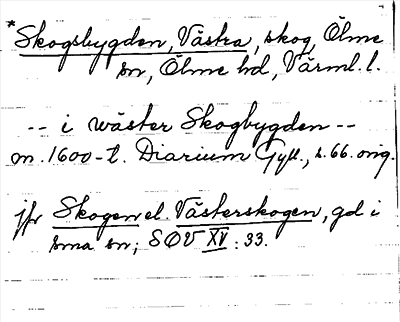 *Skogsbygden, Västra, skog, Ölme
sn, Ölme hd, Värml. l.
-- i wäster Skogbygden --
m. 1600-t. Diarium Gyll., s. 66. orig.
jfr Skogen el. Västerskogen, gd i
sma sn; SOV XV: 33.